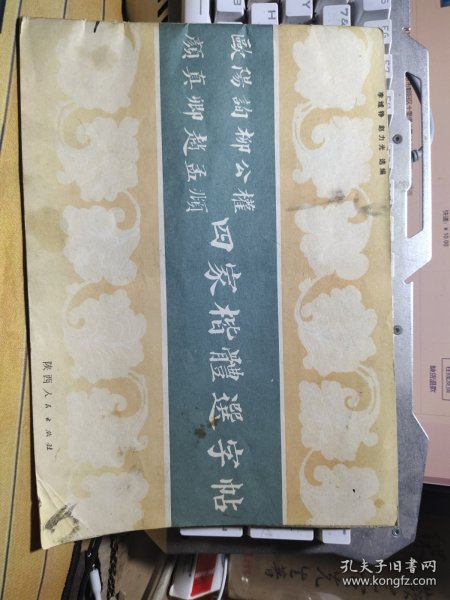 李域铮 赵力光 选编
歐陽詢 柳公權
顏真卿 趙孟頫
四家楷體選字帖
陕西人民出版社
孔夫子旧书网
www.kongfz.com